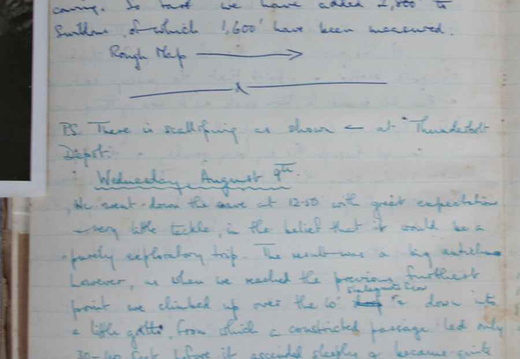 caving. So far we have added 2,800 to
Swildons, of which 1,600' have been measured.
Rough Map
PS. There is scalloping as shown ← at "Thunderbolt
Depot.
Wednesday, August 9th.
We went down the cave at 12.50 with great expectations
very little tackle, in the belief that it would be a
purely exploratory trip. The result was a big anticlimax
however, as when we reached the previous furthest
point we climbed up over the 10' & down into
a little grotto, from which a constricted passage led only
30-40 feet before it ascended steeply & became quite